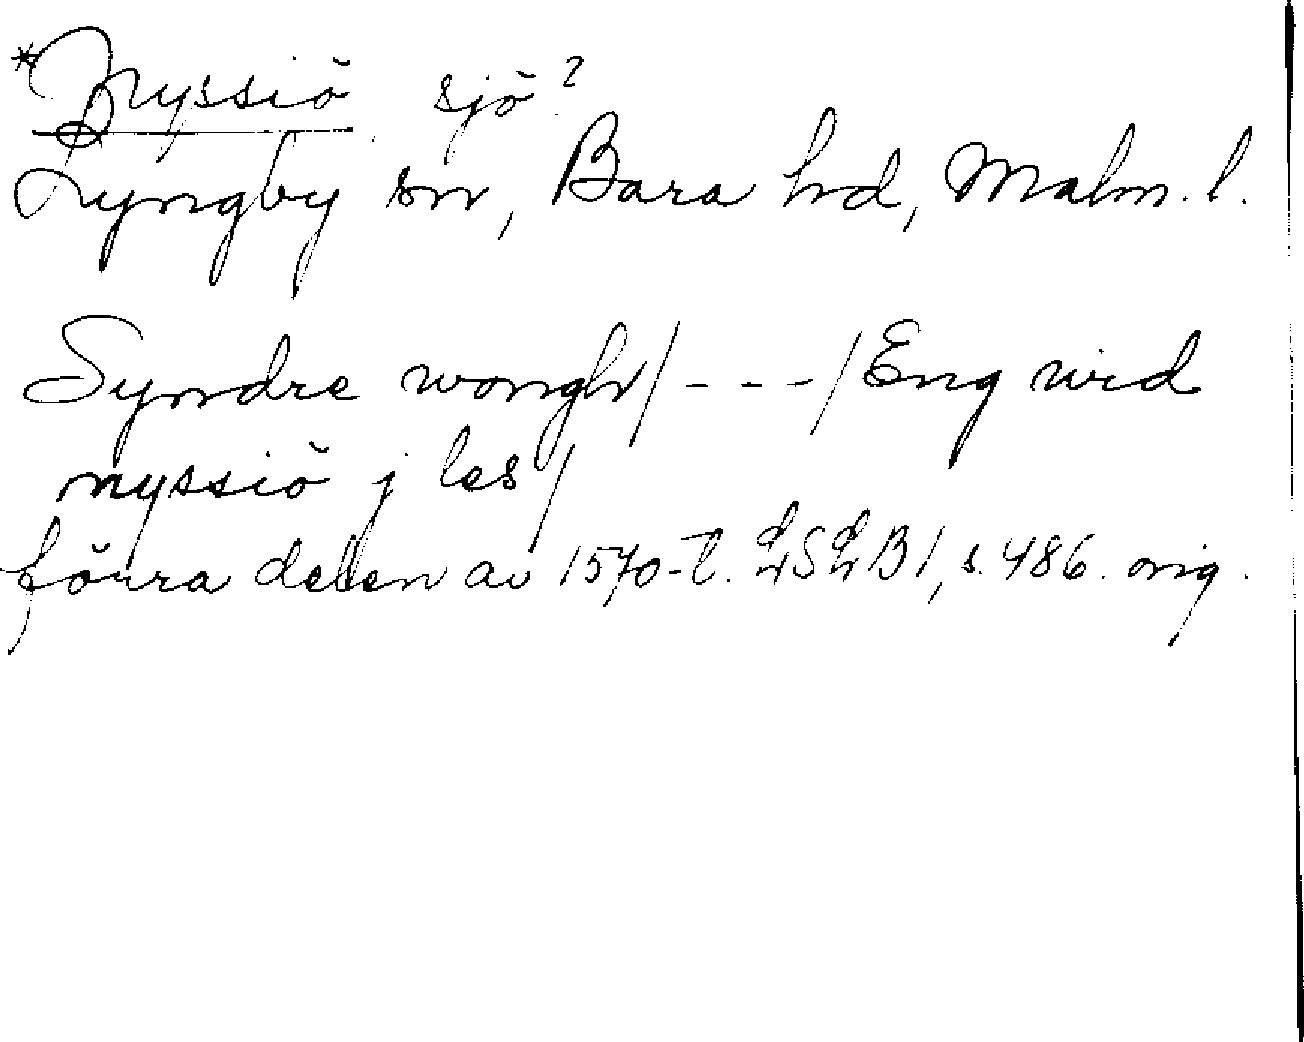 *Nyssiö sjö?
Lyngby sn, Bara hd, Malm. l.
Syndre wongh/ - - - /Eng wid
nyssiö j les/
förra delen av 1570-t. LSLB1, s. 486. orig.